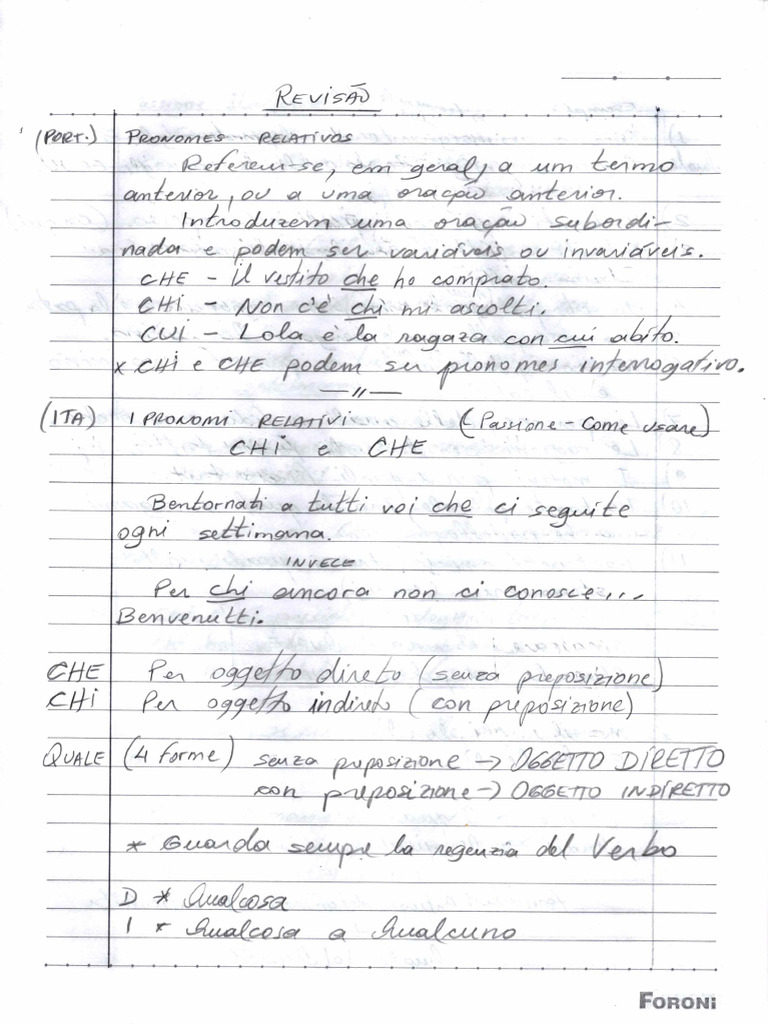 REVISÃO
(PORT.) PRONOMES RELATIVOS
Referem-se, em geral, a um termo
anterior, ou a uma oração anterior.
Introduzem uma oração subordi-
nada e podem ser variáveis ou invariáveis.
CHE - il vestito che ho comprato.
CHI - Non c'è chi mi ascolti.
CUI - Lola è la ragaza con cui abito.
* CHI e CHE podem ser pronomes interrogativo.
—//—
(ITA) I PRONOMI RELATIVI (Passione - Come usare)
CHI e CHE
Bentornati a tutti voi che ci seguite
ogni settimana.
INVECE
Per chi ancora non ci conosce...
Benvenutti.
CHE Per oggetto direto (senza preposizione)
CHI Per oggetto indireto (con preposizione)
QUALE (4 forme) senza preposizione → OGGETTO DIRETTO
con preposizione → OGGETTO INDIRETTO
* Guarda sempre la regenzia del Verbo
D * Qualcosa
I * Qualcosa a Qualcuno
FORONI